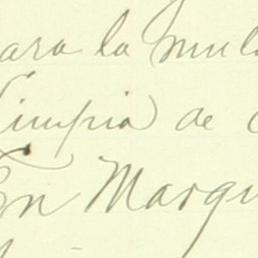 para la mula
limpia de
En Marqu